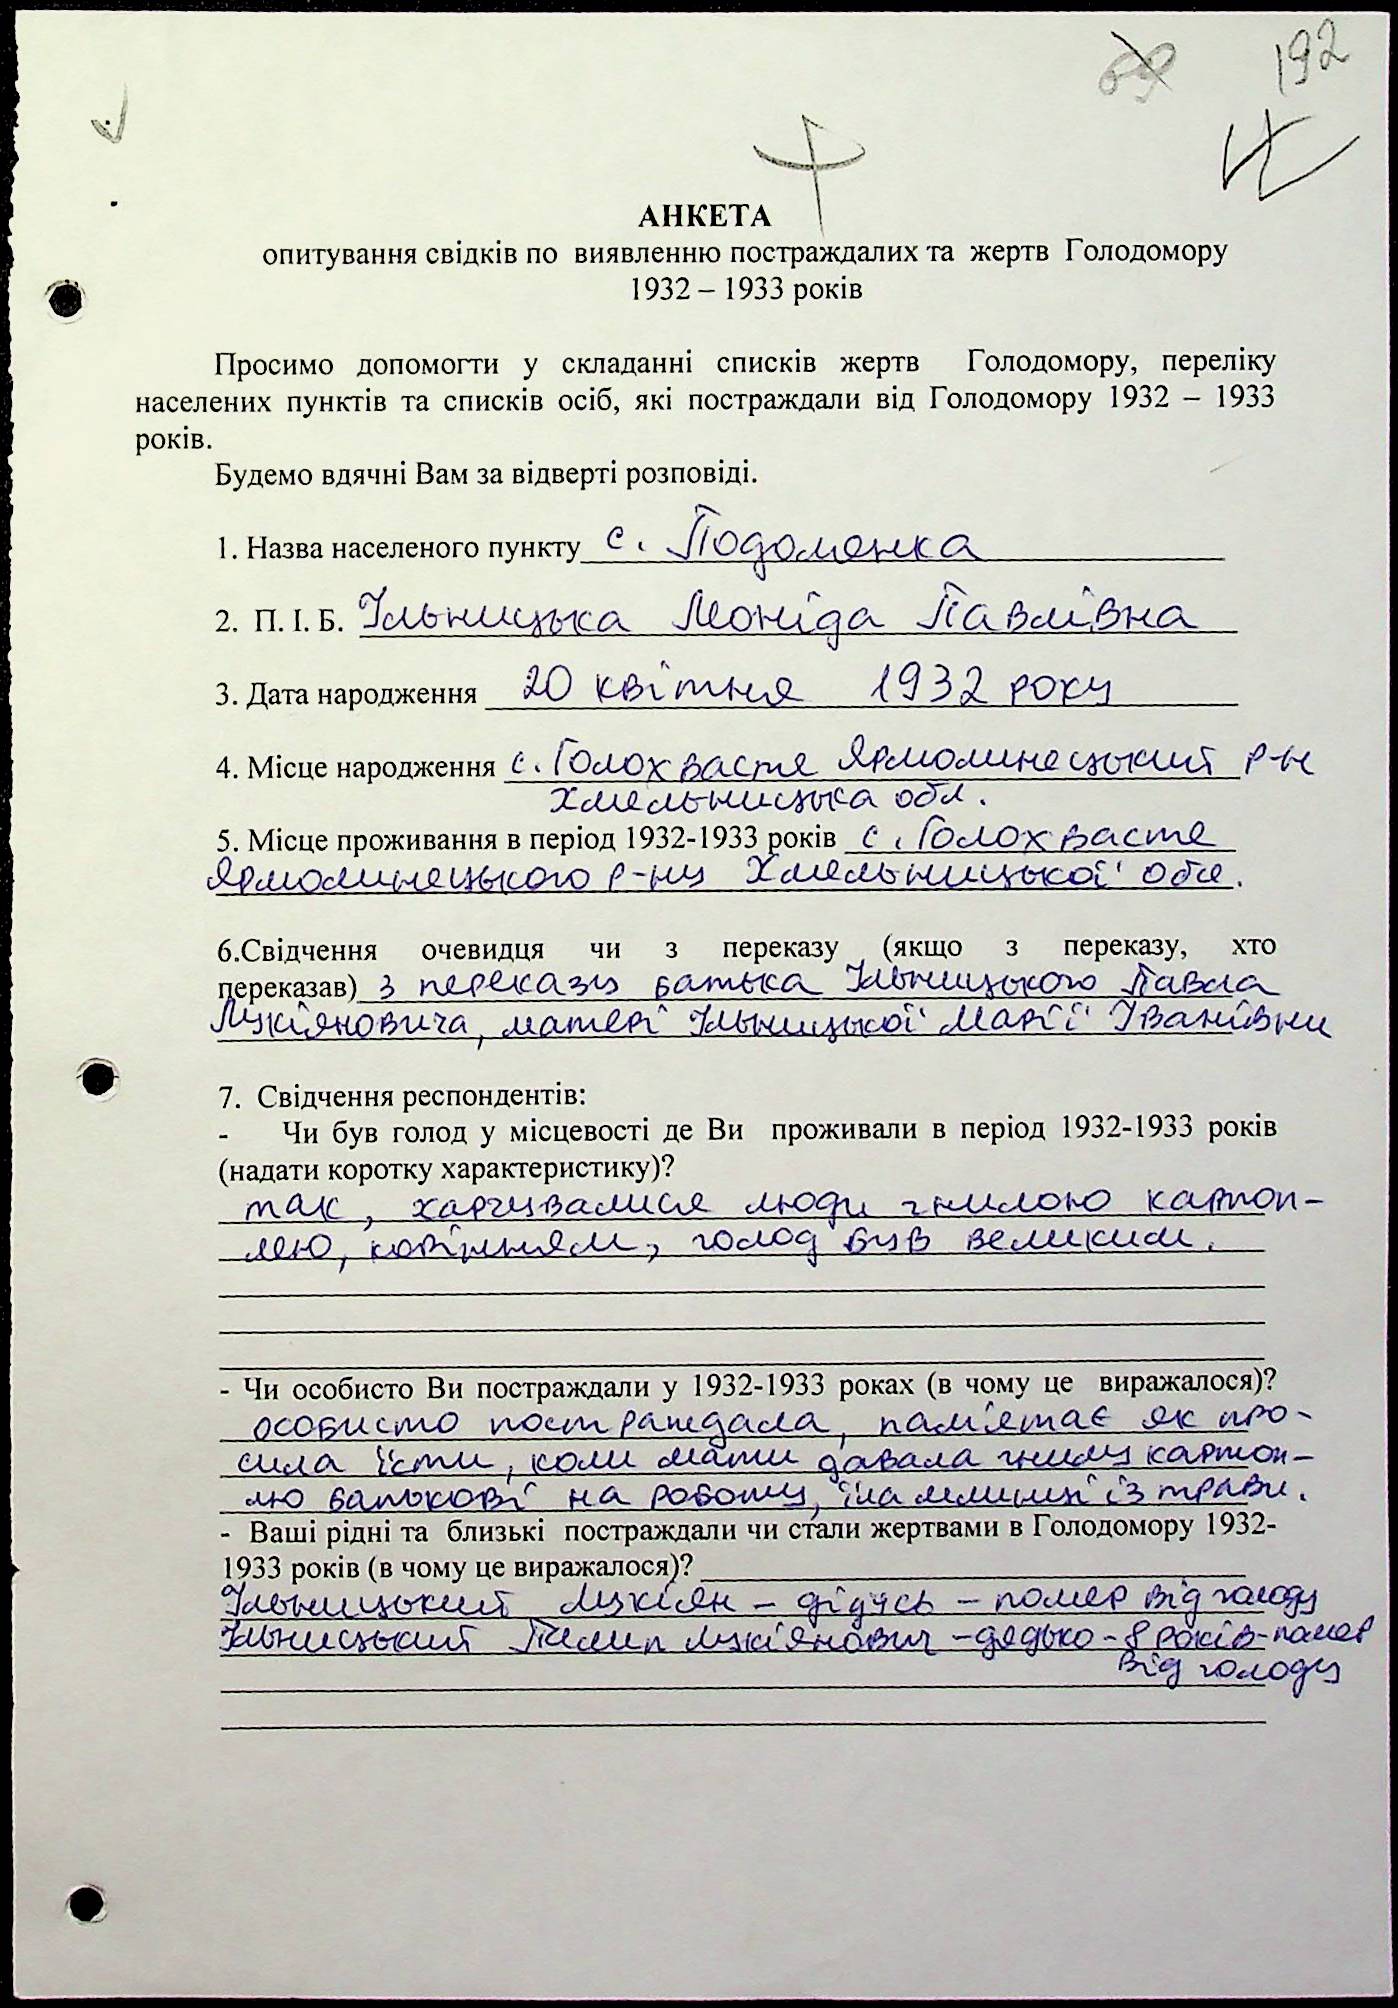 192
АНКЕТА
опитування свідків по виявленню постраждалих та жертв Голодомору
1932 – 1933 років
Просимо допомогти у складанні списків жертв Голодомору, переліку
населених пунктів та списків осіб, які постраждали від Голодомору 1932 – 1933
років.
Будемо вдячні Вам за відверті розповіді.
1. Назва населеного пункту с. Подоленка
2. П. І. Б. Ільницька Леоніда Павлівна
3. Дата народження 20 квітня 1932 року
4. Місце народження с. Голохвасте Ярмолинецький р-н
Хмельницька обл.
5. Місце проживання в період 1932-1933 років с. Голохвасте
Ярмолинецького р-ну Хмельницької обл.
6.Свідчення очевидця чи з переказу (якщо з переказу, хто
переказав) з переказу батька Ільницького Павла
Лукіяновича, матері Ільницької Марії Іванівни
7. Свідчення респондентів:
- Чи був голод у місцевості де Ви проживали в період 1932-1933 років
(надати коротку характеристику)?
так, харчувалися люди гнилою картоп-
лею, корінням, голод був великим.
- Чи особисто Ви постраждали у 1932-1933 роках (в чому це виражалося)?
особисто постраждала, пам'ятає як про-
сила їсти, коли мати давала гнилу картоп-
лю батькові на роботу, їла млинці із трави.
- Ваші рідні та близькі постраждали чи стали жертвами в Голодомору 1932-
1933 років (в чому це виражалося)?
Ільницький Лукіян – дідусь – помер від голоду
Ільницький Пилип Лукіянович – дядько – 8 років – помер
від голоду